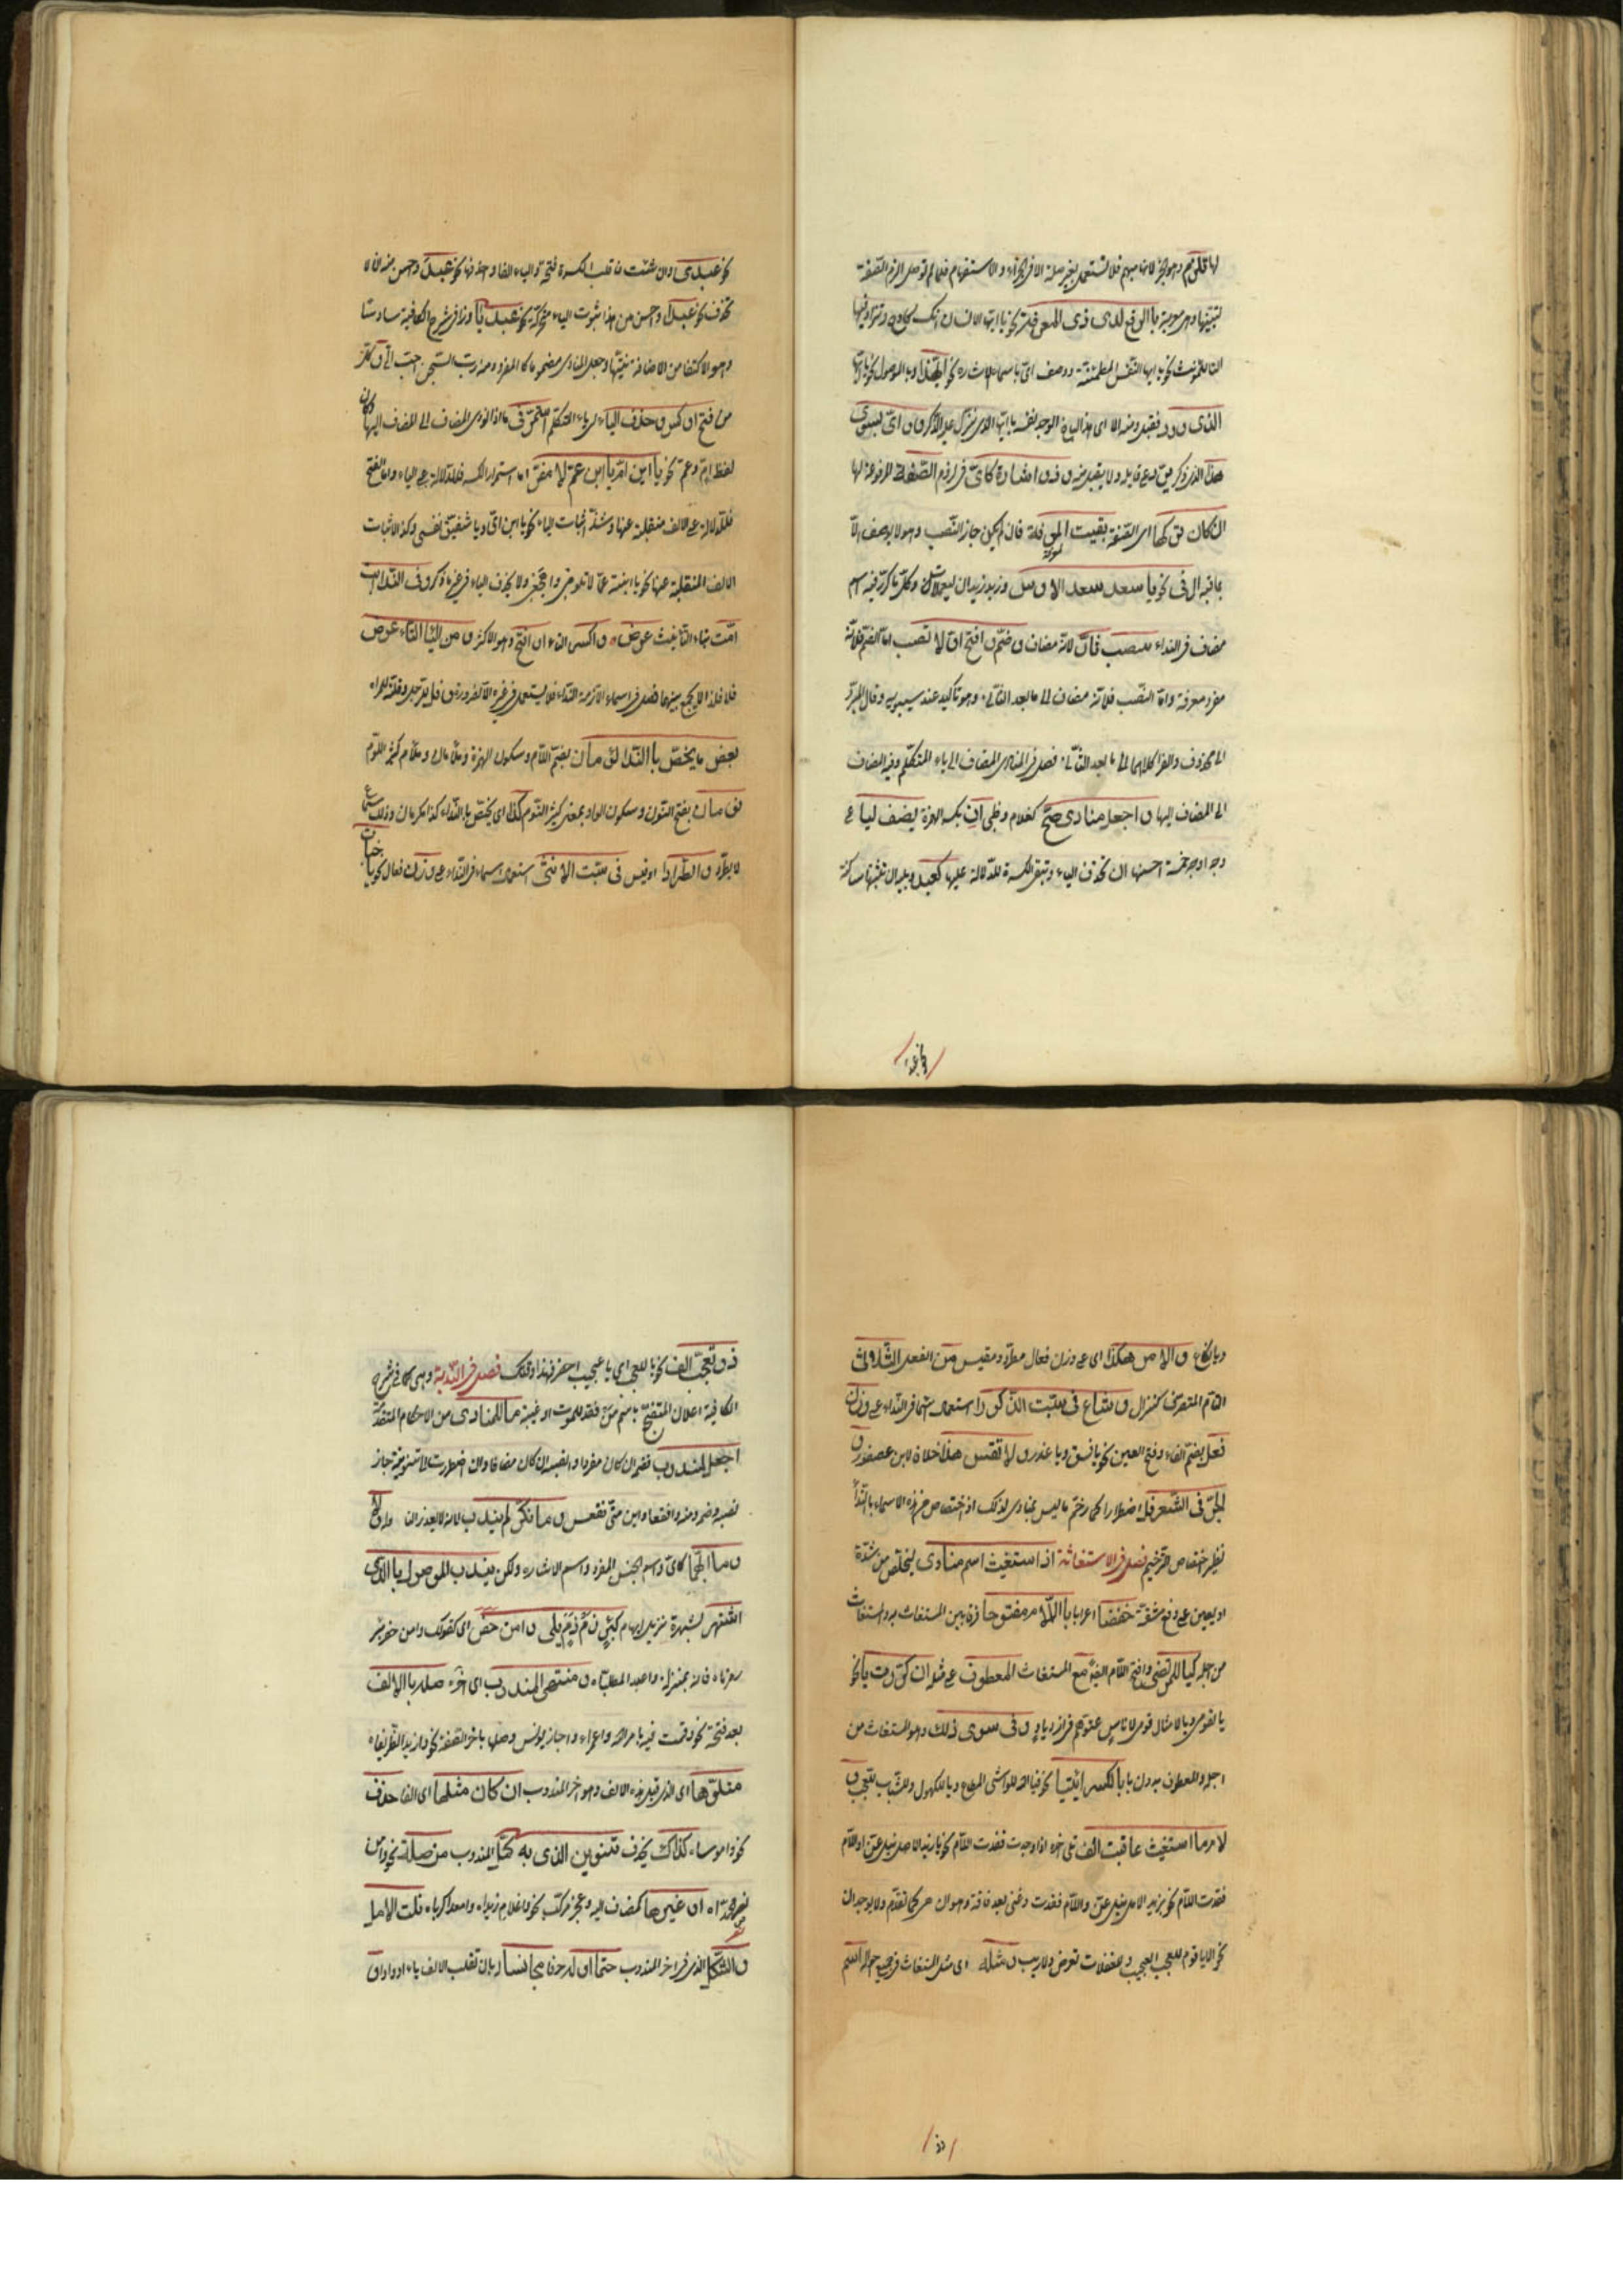 لها قلق مبهم وهو انها مبهم فلا تستعمل بغير صلة الا فى الجزاء والاستفهام فلما لم توصل الزم الصفة
لتبينها وهى معربة بالرفع لدى ذى المعرفة نحو يا ايها الانسان انك كادح وتزاد فيها
التاء للمؤنث نحو يا ايتها النفس المطمئنة ووصف اى باسماء الاشارة نحو ايهذا وبالموصول نحو يا ايها
الذى ورد فقبل ومنه الا اى هذا الباخع الوجد نفسه يا ايها الذى نزل عليه الذكر و وصف اى بسوى
هذا الذى ذكر يرد على قايله ولا يقبل منه و ذو اشارة كاى فى لزوم الصفة المرفوعة لها
ان كان تركها اى الصفة يفيت المعرفة فان لم يكن جاز النصب وهو لا يوصف الا
بما فيه ال فى نحو يا سعد سعد الاوس وزيد زيد اليعملات وكل ما كرر فيه اسم
مضاف فى النداء ينتصب ثان لانه مضاف وضم وافتح اولا تصب اما الضم فلانه
مفرد معرفة واما النصب فلانه مضاف الى ما بعد الثانى وهو تاكيد عند سيبويه وقال المبرد
الى محذوف والفرا كلاهما الى ما بعد الثانى فصل فى المنادى المضاف الى ياء المتكلم وفيه المضاف
الى المضاف اليها واجعل منادى صح كغلام وظبى ان بكسر الهمزة يضف ليا على
وجه اوجه خمسة احسنها ان تحذف الياء وتبقى الكسرة للدلالة عليها كعبد ويليه ان تثبتها ساكنة
نحو عبدى
نحو عبدى وان شئت فاقلب الكسرة فتحة والياء الفا واحذفها نحو عبد واحسن منه ان لا
تحذف نحو عبدا واحسن من هذا ثبوت الياء محركة نحو عبديا وزاد فى شرح الكافية سادسا
وهو الاكتفا من الاضافة بنيتها وجعل المنادى مضموما كالمفرد ومنه رب السجن احب الى وكل
من فتح او كسر وحذف الياء اى ياء المتكلم استمر فى ما اذا نودى المضاف الى المضاف اليها وكان
لفظ ام وعم نحو يا ابن ام يا ابن عم لا مفر اما استمرار الكسر فللدلالة على الياء واما الفتح
فللدلالة على الالف منقلبة عنها وشذ اثبات الياء نحو يا ابن امى ويا شقيق نفسى وكذا اثبات
الالف المنقلبة عنها نحو يا ابنة عما لا تلومى واهجعى ولا تحذف الياء فى غير ما ذكر وفى الندا ابت
امت بتاء التانيث عرض واكسر التاء او افتح وهو الاكثر ومن اليا التاء عوض
فلا فلذا لا يجمع بينهما فصل فى اسماء لازمة النداء فلا يستعمل فى غيره الا لضرورة و فل للرجل وفلة للمراة
بعض ما يخص بالندا لؤمان بضم اللام وسكون الهمزة وملأم وملأمان كثير اللؤم
نومان بفتح النون وسكون الواو بمعنى كثير النوم كذا اى يختص بالنداء كذا مكرمان وذلك سماع
لا يطرد واطردا او قيس فى سب الانثى استعمال اسماء فى النداء على وزن فعال نحو يا خباث
ويا لكاع والامر هكذا اى على وزن فعال مطرد ومقيس من الفعل الثلاثى
التام المتصرف كنزال وشاع فى سب الذكور استعمال اسماء فى النداء على وزن
فعل بضم الفاء وفتح العين نحو يا فسق ويا غدر ولا تقس هذا خلافا لابن عصفور و
جر فى الشعر فل اضطرارا كما رخم ما ليس بمنادى لذلك اذ اختصاص هذه الاسماء بالنداء
نظير اختصاص الترخيم فصل فى الاستغاثة اذا استغيث اسم منادى ليخلص من شدة
او يعين على دفع مشقة خفضا اعرابا باللام مفتوحا فرقا بين المستغاث به والمستغاث
من اجله كيا للمرتضى وافتح اللام ايضا مع المستغاث المعطوف على مثله ان كررت يا نحو
يا لقومى ويا لامثال قومى لاناس عتوهم فى ازدياد وفى سوى ذلك وهو المستغاث من
اجله والمعطوف بدون يا بالكسر ائتيا نحو فيا لله للواشى المطاع ويا للكهول وللشباب للعجب و
لام ما استغيث عاقبت الف تلى اخره اذا وجدت فقدت اللام نحو يا زيدا لامل نيل عز واللام
فقدت اللام نحو يا يزيدا لامل نيل عز واللام فقدت وغنى بعد فاقة وهوان هى كما تقدم ولا يوجدان
نحو الا يا قوم للعجب العجيب وللغفلات تعرض للاريب ومثله اى مثل المستغاث فى جميع احواله اسم
ذو
ذو تعجب الف نحو يا للعجب اى يا عجيب احضر فهذا وقتك فصل فى الندبة وهى كما فى شرح
الكافية اعلان المتفجع باسم من فقده لموت او غيبة ما للمنادى من الاحكام المتقدمة
اجعل لمندوب فضم ان كان مفردا وانصبه ان كان مضافا وان اضطررت الى تنوينه جاز
نصبه وضمه ومنه وافقعسا واين منى فقعس وما نكر لم يندب لانه لا يعذر النادب له
وما ابهما كاى واسم الجنس المفرد واسم الاشارة ولكن يندب الموصول بالذى
اشتهر لشهرة تزيل ابهامه كبئر زمزم يلى وامن حفر اى كقولك وامن حفر بئر
زمزماه فانه بمنزلة واعبد المطلباه ومنتهى المندوب اى اخره صله بالالف
بعد فتحة نحو وقمت فيه بامر الله يا عمرا واجاز يونس وصلها باخر الصفة نحو وازيد الظريفاه
متلوها اى الذى قبل هذه الالف وهو اخر المندوب ان كان مثلها اى الفا حذف
نحو واموساه كذاك يحذف تنوين الذى به كمل المندوب من صلة نحو وامن
حفر بئر زمزماه او غيرها كمضاف اليه وعجز مركب نحو واغلام زيداه وامعد كرباه نلت الامل
والشكل الذى فى اخر المندوب حتما اوله حرفا مجانسا له بان تقلب الالف ياء او واوا